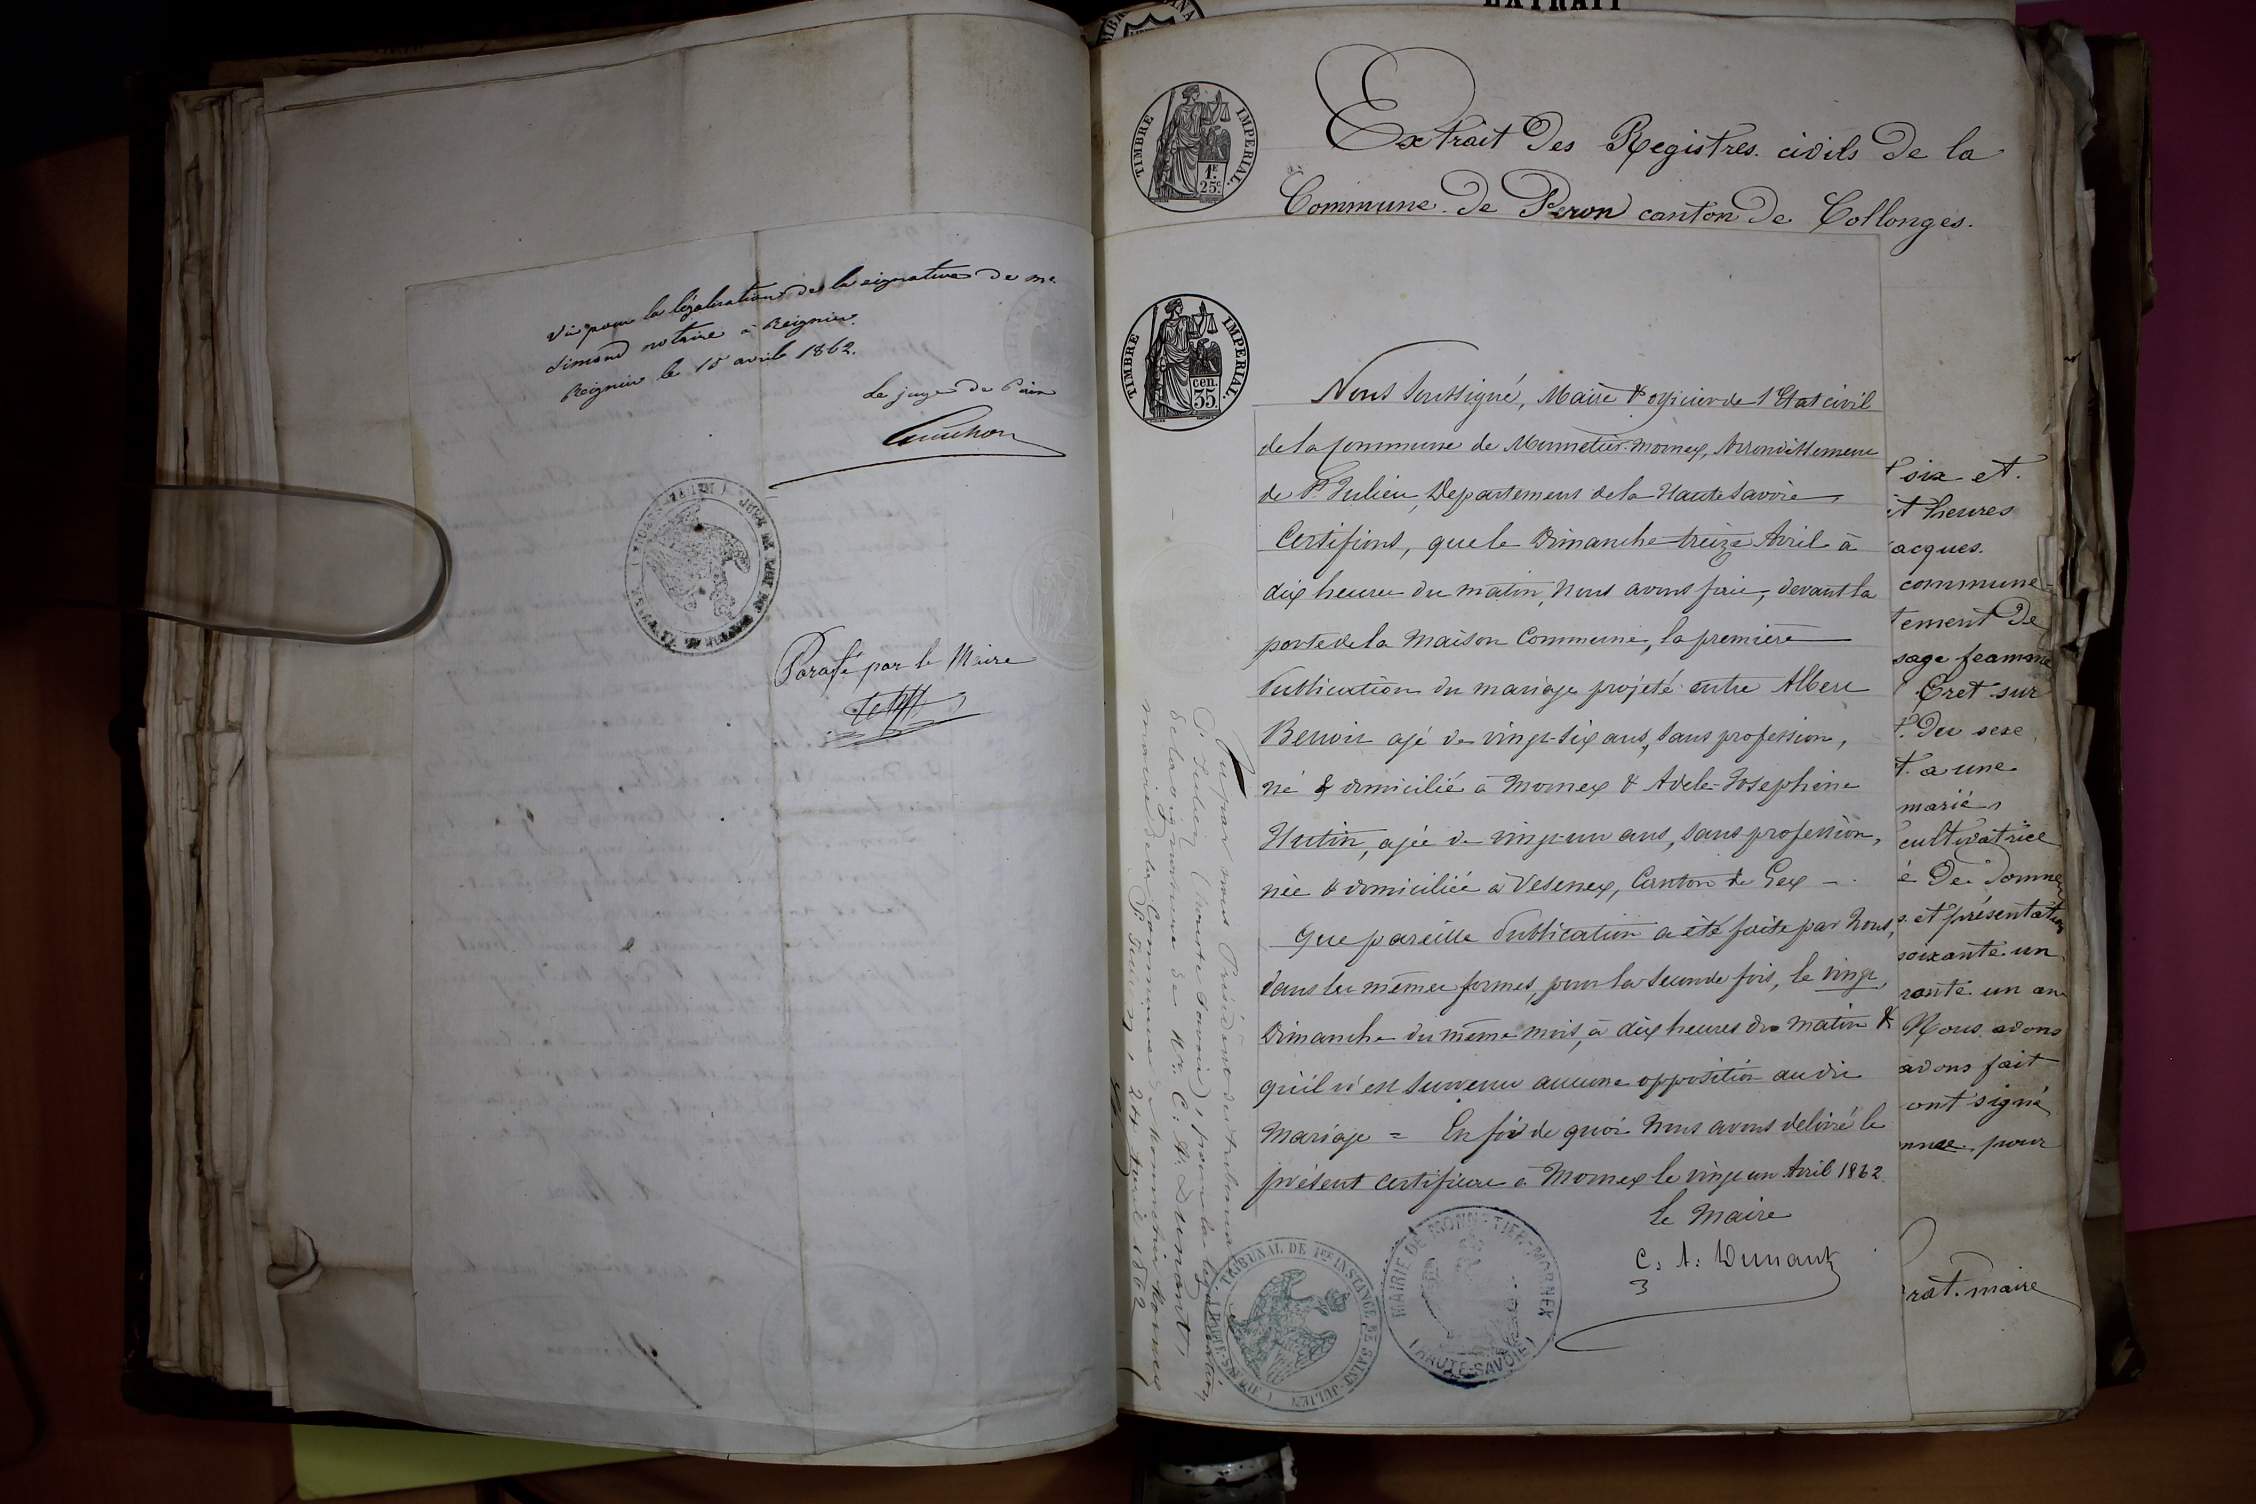 Vu pour la légalisation de la signature de me
Simond notaire à Reignier.
Reignier le 15 avril 1862.
Le juge de Paix
Parafé par le Maire
EXTRAIT
TIMBRE IMPERIAL.
1F. 25c.
Extrait Des Registres civils De la
Commune De Peron canton De Collonges.
TIMBRE IMPERIAL.
cen. 35.
Nous Soussigné, Maire & officier de l'Etat civil
de la Commune de Monnetier-Mornex, Arrondissement
de St Julien, Departement de la Haute Savoie,
Certifions, que le Dimanche treize Avril à
dix heures du matin, Nous avons fait, devant la
porte de la Maison Commune, la première
Publication du mariage projeté entre Albert
Benoit agé de vingt-six ans, sans profession,
né & domicilié à Mornex & Adele-Josephine
Hutin, agée de vingt-un ans, sans profession,
née & domiciliée à Vesenex, Canton de Gex -.
Que pareille Publication a été faite par Nous,
dans les mêmes formes, pour la seconde fois, le vingt,
Dimanche du même mois, à dix heures du matin &
qu'il n'est survenu aucune opposition au dit
Mariage = En foi de quoi Nous avons délivré le
présent certificat à Mornex le vingt un Avril 1862.
Le Maire
C. A. Dunant
MAIRIE DE MONNETIER-MORNEX
(HAUTE-SAVOIE)
TRIBUNAL DE 1ERE INSTANCE DE SAINT-JULIEN
Vu par nous Président du tribunal
St Julien (haute Savoie), pour la légalisation
de la signature de Mr. C. A. Dunant
maire de la Commune de Monnetier Mornex
St Julien, 24 Avril 1862
six et
t heures
acques.
commune
tement De
sage feamme
Cret sur
Du sexe
a une
mariés
cultivatrice
é De Domne
et présentation
soixante un
rante un an
Nous avons
avons fait
ont signé
pour
rat. maire